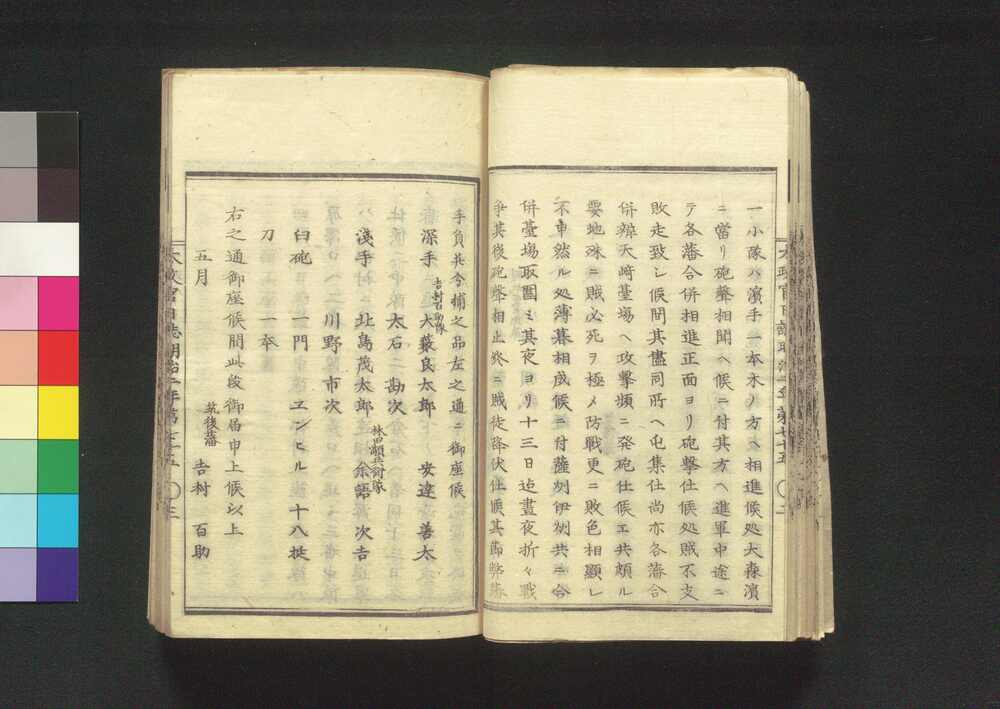 一小隊ハ濱手一本木ノ方ヘ相進候処大森濱
ニ當リ砲聲相聞ヘ候ニ付其方ヘ進軍中途ニ
テ各藩合併相進正面ヨリ砲撃仕候処賊不支
敗走致シ候間其儘同所ヘ屯集仕尚亦各藩合
併辨天﨑臺場ヘ攻撃頻ニ発砲仕候エ共頗ル
要地殊ニ賊必死ヲ極メ防戦更ニ敗色相顕レ
不申然ル処薄暮相成候ニ付薩州伊州共ニ合
併臺場取圍ミ其夜ヨリ十三日迠晝夜折々戦
争其後砲聲相止終ニ賊徒降伏仕候其節弊藩
手負并分捕之品左之通ニ御座候
深手 吉村百助隊 大藪良太郎 安達善太
太石二勘次
淺手 北島茂太郎 林田願兵衛隊 余語次吉
川野市次
臼砲 一門 ヱンヒル 十八挺
刀 一本
右之通御座候間此段御届申上候以上
五月 筑後藩 吉村 百助
太政官日誌明治二年第七十五 〇三